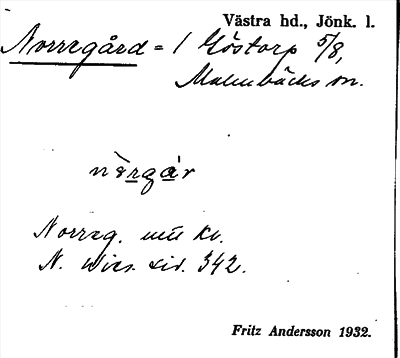 Västra hd., Jönk. l.
Norregård = 1 Höstorp 5/8,
Malmbäcks sn.
nèrgár
Norreg. uu kv.
N. Wies. sid. 342.
Fritz Andersson 1932.